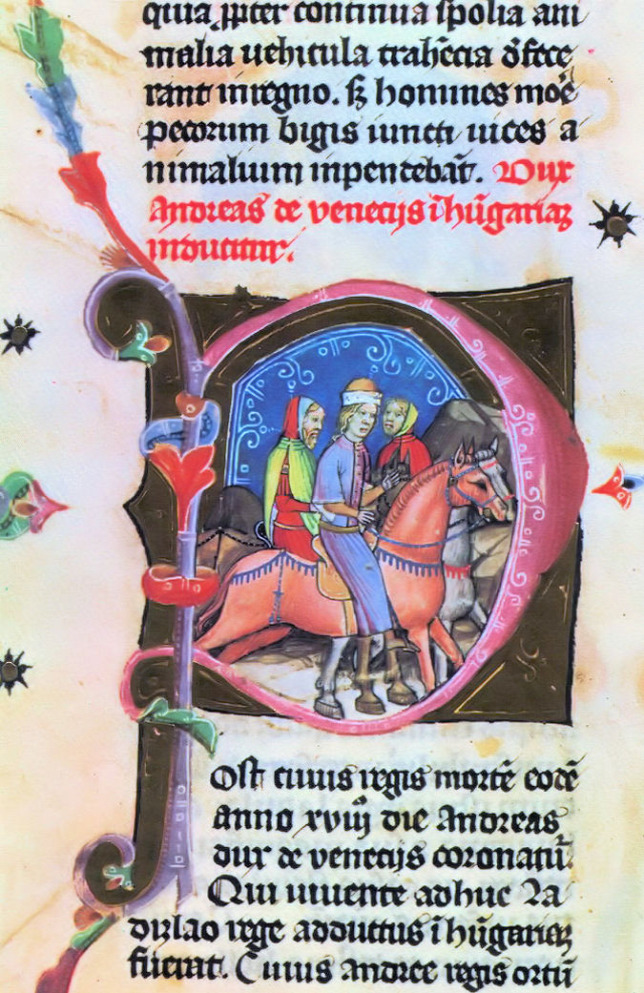 quia ꝓpter continua spolia ani
malia uehicula trahẽcia d̓fece
rant in regno. sꝫ homines moͤ
pecorum bigis iuncti uices a
nimalium inpendebãt. Dux
Andreas de venecijs ĩ hũgariaꝫ
inducitur.
Ost cuius regis mortẽ eodẽ
anno xviij die Andreas
dux de venecijs coronatur̃.
Qui uiuente adhuc La
dizlao rege adductus ĩ hũgariaꝫ
fuerat. Cuius Andree regis ortũ